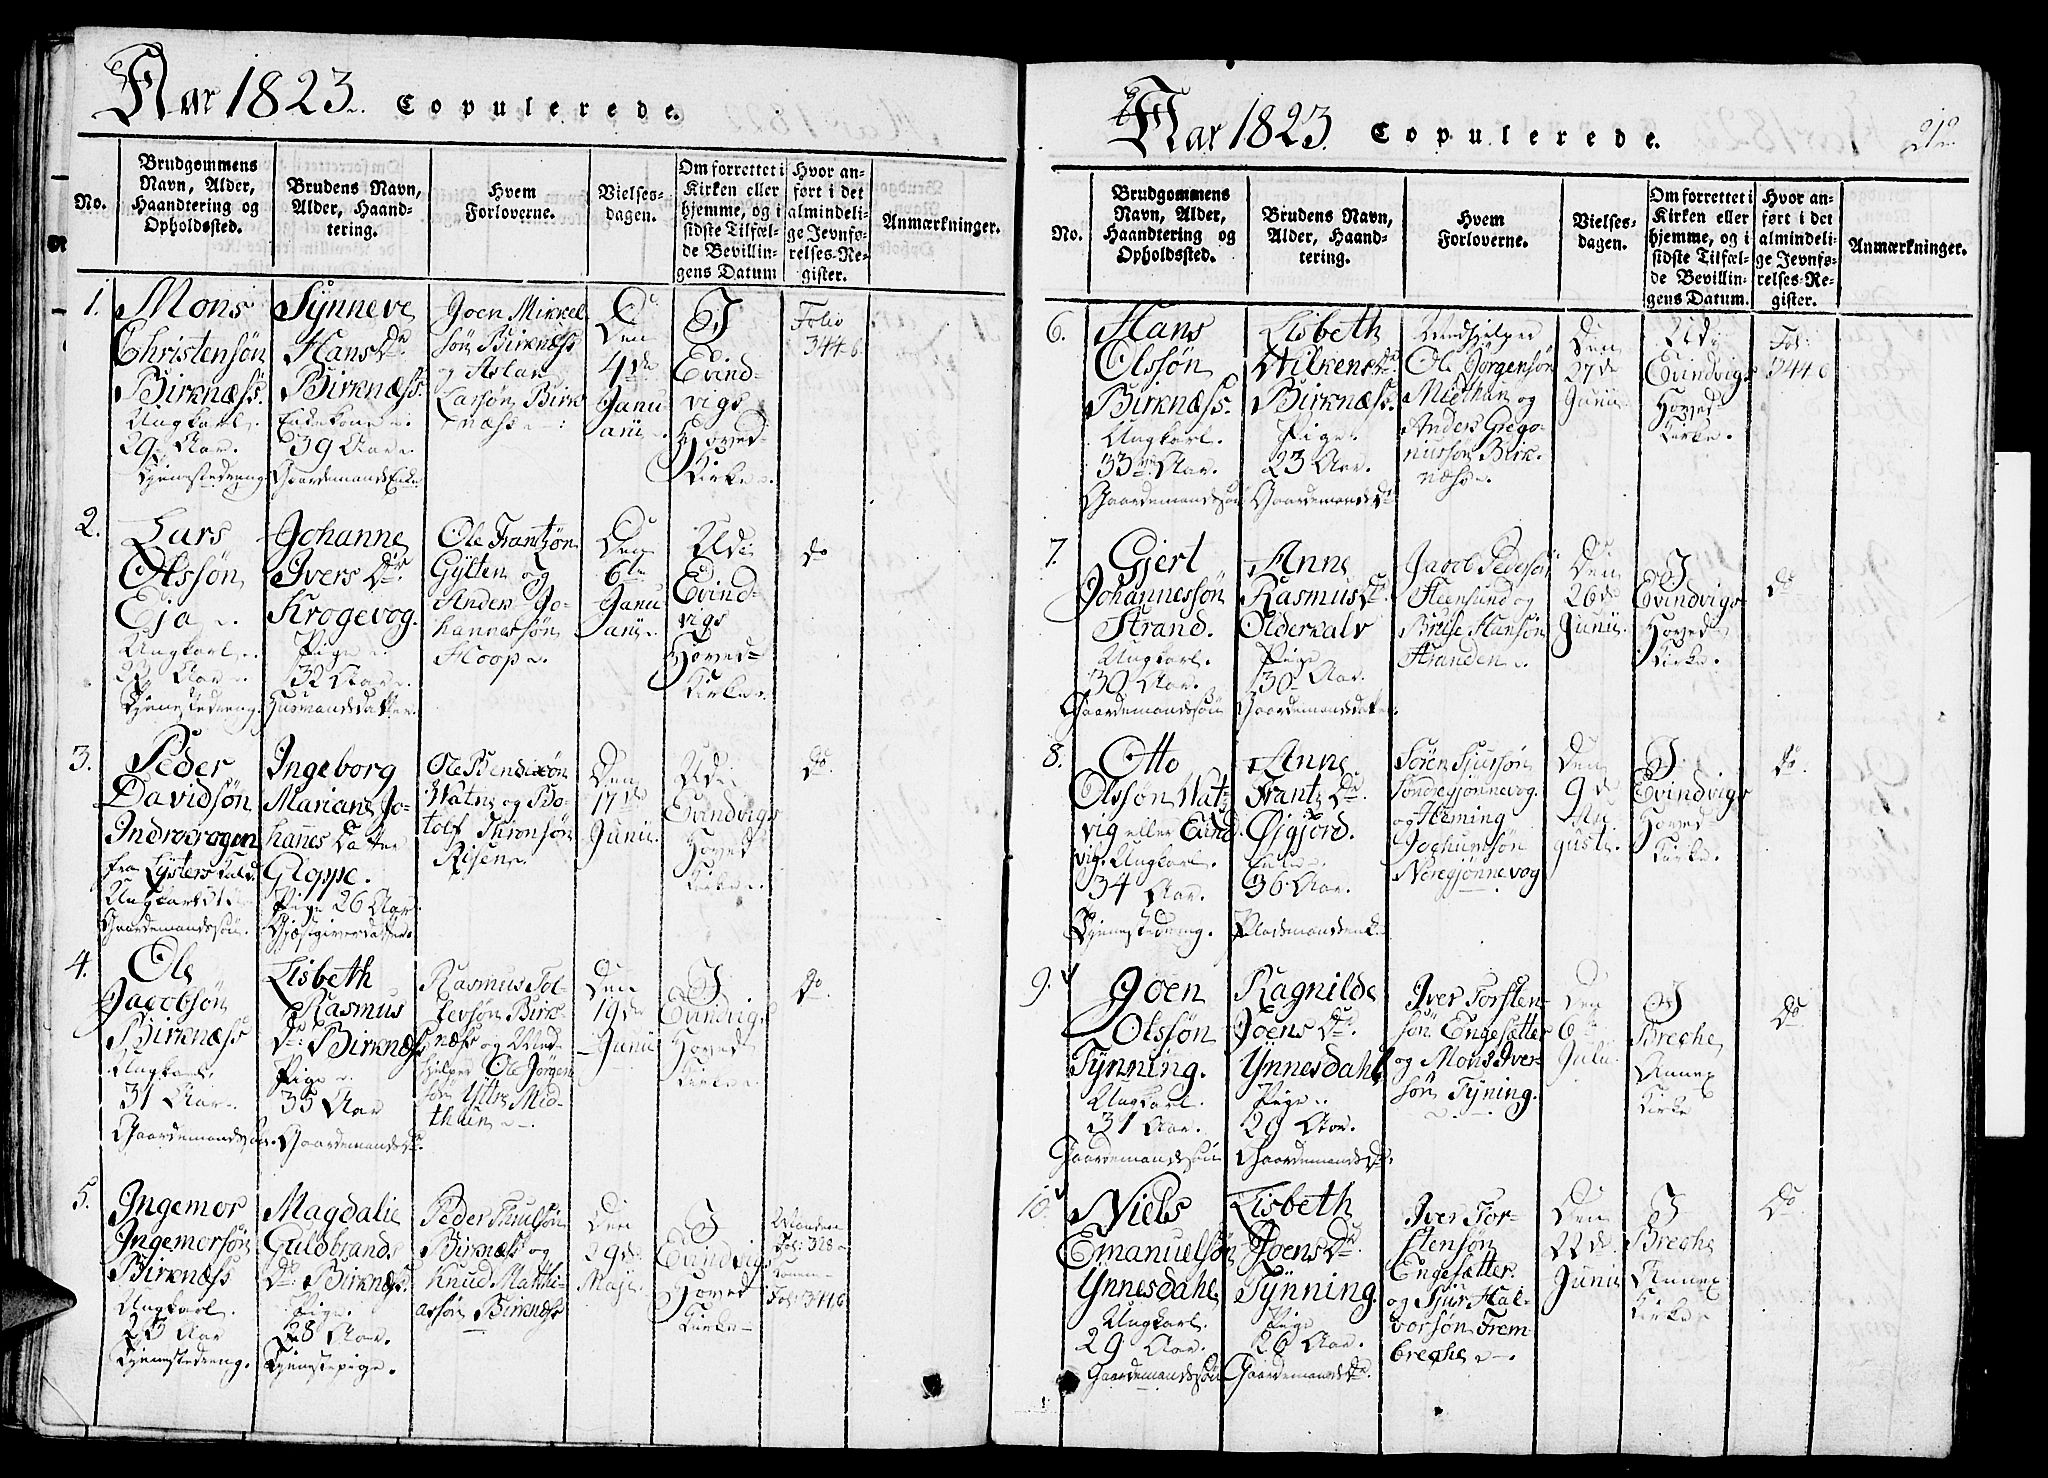 Aar 1823. Copulerede.
No.
Brudgommens
Navn, Alder,
Haandtering og
Opholdssted.
Brudens Navn,
Alder, Haand-
tering.
Hvem
Forloverne.
Vielses-
dagen.
Om forrettet i
Kirken eller
hjemme, og i
sidste Tilfæl-
de Bevillin-
gens Datum
Hvor an-
ført i det
almindeli-
ge Jevnfø-
relses-Re-
gister.
Anmærkninger.
1.
Mons
Christensøn
Birknæss.
Ungkarl.
29 Aar.
Tjenestedreng
Synneve
Hans Dr
Birknæss.
Enkekone.
39 Aar.
Gaardemands Enke
Joen Mikkel
søn Birknæss
og Aslak
Larsøn Birk
næss.
Den
4de
Janu
arii.
I
Evind-
vigs
Hoved-
Kirke.
Folio
344 6
2.
Lars
Olssøn
Eja.
Ungkarl.
23 Aar.
Tjenestedreng.
Johanne
Ivers Dr.
Krogevog.
Pige.
32 Aar.
Husmandsdatter.
Ole Frantzøn
Gylten og
Anders Jo-
hannessøn
Hoop.
Den
6te
Janu
arii.
Udi
Evind-
vigs
Hoved-
Kirke.
do
3.
Peder
Davidsøn
Indrevogen
fra Lysters
Ungkarl 31
Gaardemandssøn.
Ingeborg
Mariane Jo-
hannes Datter
Gloppe.
Pige 26 Aar
Gjæstgiverdatter
Ole Bendixøn
Watne og Bo-
tolf Thronsøn
Risene.
Den
17de
Junii.
Udi
Evindvigs
Hoved
Kirke.
do.
4.
Ole
Jacobsøn
Birknæss
Ungkarl.
31 Aar.
Gaardemandssøn.
Lisbeth
Rasmus
Dr. Birknæss
Pige.
35 Aar
Gaardemandsdr.
Rasmus Tol-
levsøn Birk
næss og Med
hjelper Ole Jørgen
søn Yttre Mid-
thun.
Den
19de
Junii
I
Evindvigs
Hoved
Kirke.
do.
5.
Ingemor
Ingemorsøn
Birknæss
Ungkarl.
23 Aar
Tjenestedreng.
Magdalie
Guldbrands
Dr. Birknæss.
Pige.
28 Aar.
Tjenestepige.
Peder Thuulsøn
Birknæss og
Knud Matthi-
assøn Birknæss
Den
29de
Maji.
I
Evindvigs
Hoved
Kirke
Fol: 328
Fol: 344 6
Aar 1823. Copulerede.
212
No.
Brudgommens
Navn, Alder,
Haandtering og
Opholdssted.
Brudens Navn,
Alder, Haand-
tering.
Hvem
Forloverne.
Vielses-
dagen.
Om forrettet i
Kirken eller
hjemme, og i
sidste Tilfæl-
de Bevillin-
gens Datum.
Hvor an-
ført i det
almindeli-
ge Jevnfø-
relses-Re-
gister.
Anmærkninger.
6.
Hans
Olssøn
Birknæss.
Ungkarl.
33 Aar.
Gaardemandssøn
Lisbeth
Wilkens Dr.
Birknæss.
Pige.
23 Aar.
Gaardemandsdr
Medhjelper
Ole Jørgensøn
Midthun og
Anders Grego-
riussøn Birk-
næss.
Den
27de
Junii
Udi
Evindvigs
Hoved
Kirke.
Fol:
344 6
7.
Gjert
Johannessøn
Strand.
Ungkarl.
30 Aar.
Gaardemandssøn
Anne
Rasmus Dr.
Olderkalv
Pige
30 Aar.
Gaardemandsdatter.
Jacob Pedersøn
Steensund og
Bruse Hansøn
Stranden.
Den
26de
Junii.
I
Evindvigs
Hoved
Kirke.
do
8.
Otto
Olssøn Wat-
vig eller Eind
vig. Ungkarl.
34 Aar.
Tjenestedreng.
Anne
Frants Dr.
Øigjord.
Enke.
36 Aar.
Pladsmandsenke
Søren Sjursøn
Søndregjønnevog
og Heming
Jochumsøn
Neregjønnevog
Den
9de
Au
gusti.
I
Evindvigs
Hoved
Kirke.
do.
9.
Joen
Olssøn
Tynning.
Ungkarl.
31 Aar.
Gaardemandssøn
Ragnilde
Joens Dr.
Ynnesdahl
Pige.
20 Aar.
Gaardemandsdr.
Iver Torsten-
søn Engesætter
og Mons Iver-
søn Tyning.
Den
6te
Julii.
I
Breche
Annex
Kirke
do
10.
Niels
Emanuelsøn
Ynnesdahl
Ungkarl.
29 Aar.
Gaardemandssøn
Lisbeth
Joens Dr.
Tynning.
Pige
26 Aar.
Gaardemandsdr.
Iver Tor-
stensøn
Engesætter.
og Sjur Hal-
vorsøn Frem
breche.
Den
22de
Junii
I
Breche
Annex
Kirke
do.